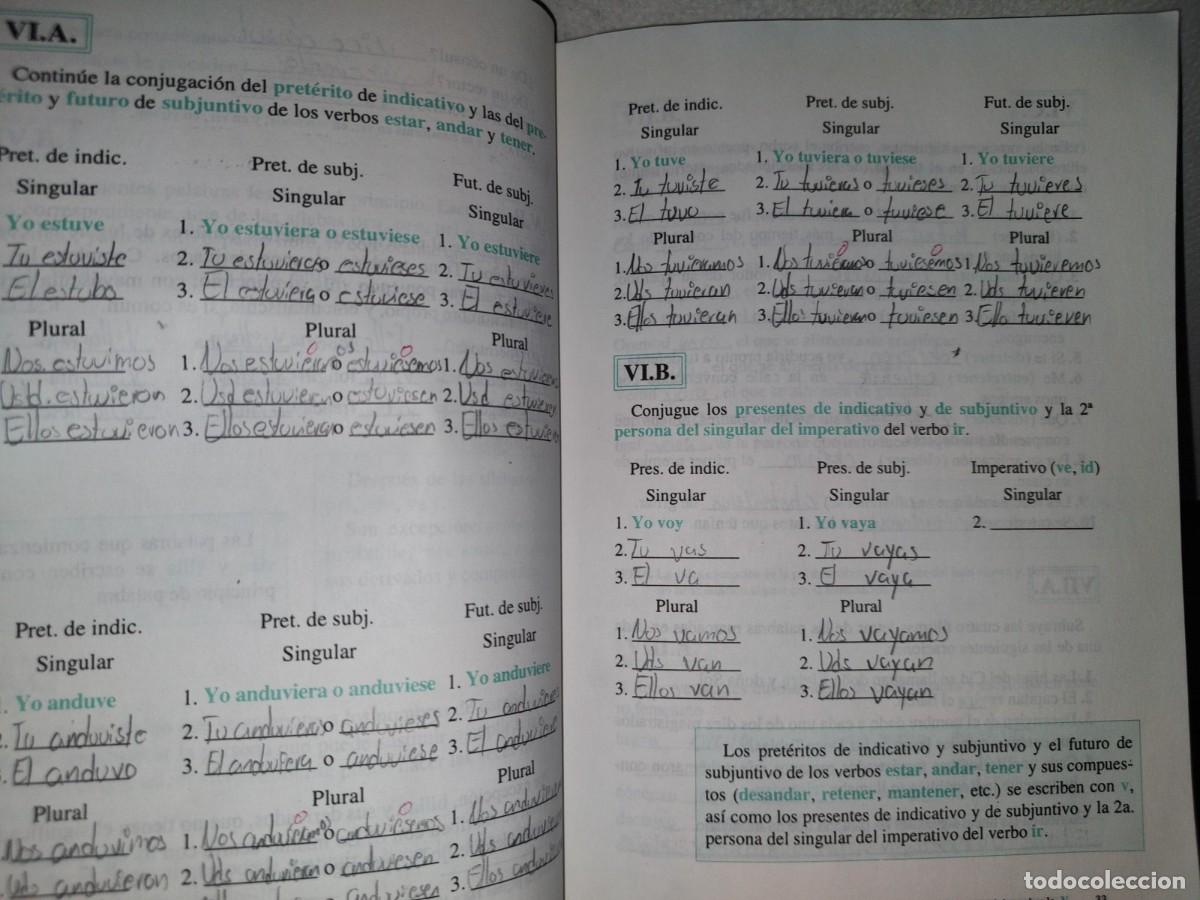 VI.A.
Continúe la conjugación del pretérito de indicativo y las del pre-
érito y futuro de subjuntivo de los verbos estar, andar y tener.
Pret. de indic. Pret. de subj. Fut. de subj.
Singular Singular Singular
Yo estuve 1. Yo estuviera o estuviese 1. Yo estuviere
Tu estuviste 2. Tu estuvieras o estuvieses 2. Tu estuvieres
El estubo 3. El estuviera o estuviese 3. El estuviese
Plural Plural Plural
Nos. estuvimos 1. Nos estuvieramos o estuviesemos 1. Nos
Usd. estuvieron 2. Usd estuvieran o estuviesen 2. Usd
Ellos estuvieron 3. Ellos estuvieran o estuviesen 3. Ellos
Pret. de indic. Pret. de subj. Fut. de subj.
Singular Singular Singular
Yo anduve 1. Yo anduviera o anduviese 1. Yo anduviere
2. Tu anduviste 2. Tu anduviera o anduvieses 2. Tu
3. El anduvo 3. El anduviera o anduviese 3. El
Plural Plural Plural
Nos anduvimos 1. Nos o 1. Nos
Uds anduvieron 2. Uds anduvieran o anduviesen 2. Uds
3. Ellos
Pret. de indic. Pret. de subj. Fut. de subj.
Singular Singular Singular
1. Yo tuve 1. Yo tuviera o tuviese 1. Yo tuviere
2. Tu tuviste 2. Tu tuvieras o tuvieses 2. Tu tuvieres
3. El tuvo 3. El tuviera o tuviese 3. El tuviere
Plural Plural Plural
1. Nos tuvieramos 1. Nos tuvieramos o tuviesemos 1. Nos tuvieremos
2. Uds tuvieran 2. Uds tuvieran o tuviesen 2. Uds tuvieren
3. Ellos tuvieran 3. Ellos tuvieran o tuviesen 3. Ello tuvieren
VI.B.
Conjugue los presentes de indicativo y de subjuntivo y la 2ª
persona del singular del imperativo del verbo ir.
Pres. de indic. Pres. de subj. Imperativo (ve, id)
Singular Singular Singular
1. Yo voy 1. Yo vaya 2.
2. Tu vas 2. Tu vayas
3. El va 3. El vaya
Plural Plural
1. Nos vamos 1. Nos vayamos
2. Uds van 2. Uds vayan
3. Ellos van 3. Ellos vayan
Los pretéritos de indicativo y subjuntivo y el futuro de
subjuntivo de los verbos estar, andar, tener y sus compues-
tos (desandar, retener, mantener, etc.) se escriben con v,
así como los presentes de indicativo y de subjuntivo y la 2a.
persona del singular del imperativo del verbo ir.
todocoleccion